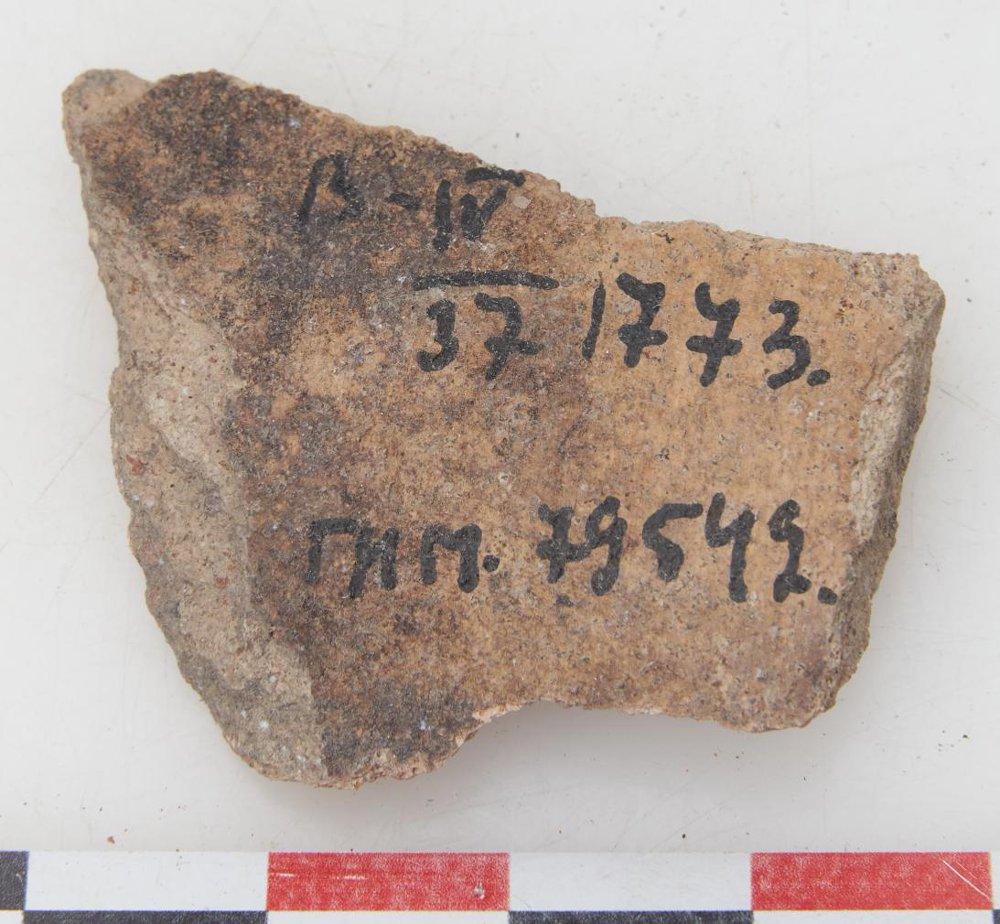 В-IV
37 1773.
ГИМ. 79549.